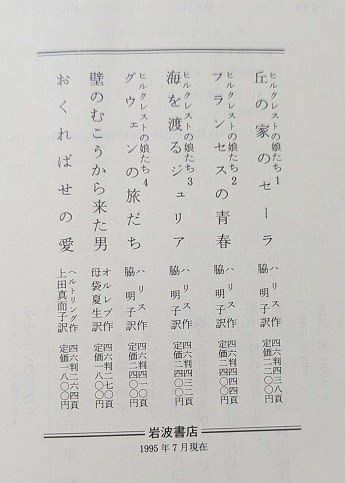 ヒルクレストの娘たち1
丘の家のセーラ
ハリス作
脇 明子訳
四六判四三八頁
定価二二〇〇円
ヒルクレストの娘たち2
フランセスの青春
ハリス作
脇 明子訳
四六判四四四頁
定価二四〇〇円
ヒルクレストの娘たち3
海を渡るジュリア
ハリス作
脇 明子訳
四六判四三二頁
定価二四〇〇円
ヒルクレストの娘たち4
グウェンの旅だち
ハリス作
脇 明子訳
四六判四一〇頁
定価二四〇〇円
壁のむこうから来た男
オルレブ作
母袋夏生訳
四六判二七〇頁
定価一八〇〇円
おくればせの愛
ヘルトリング作
上田真而子訳
四六判二六四頁
定価一八〇〇円
岩波書店
1995年7月現在